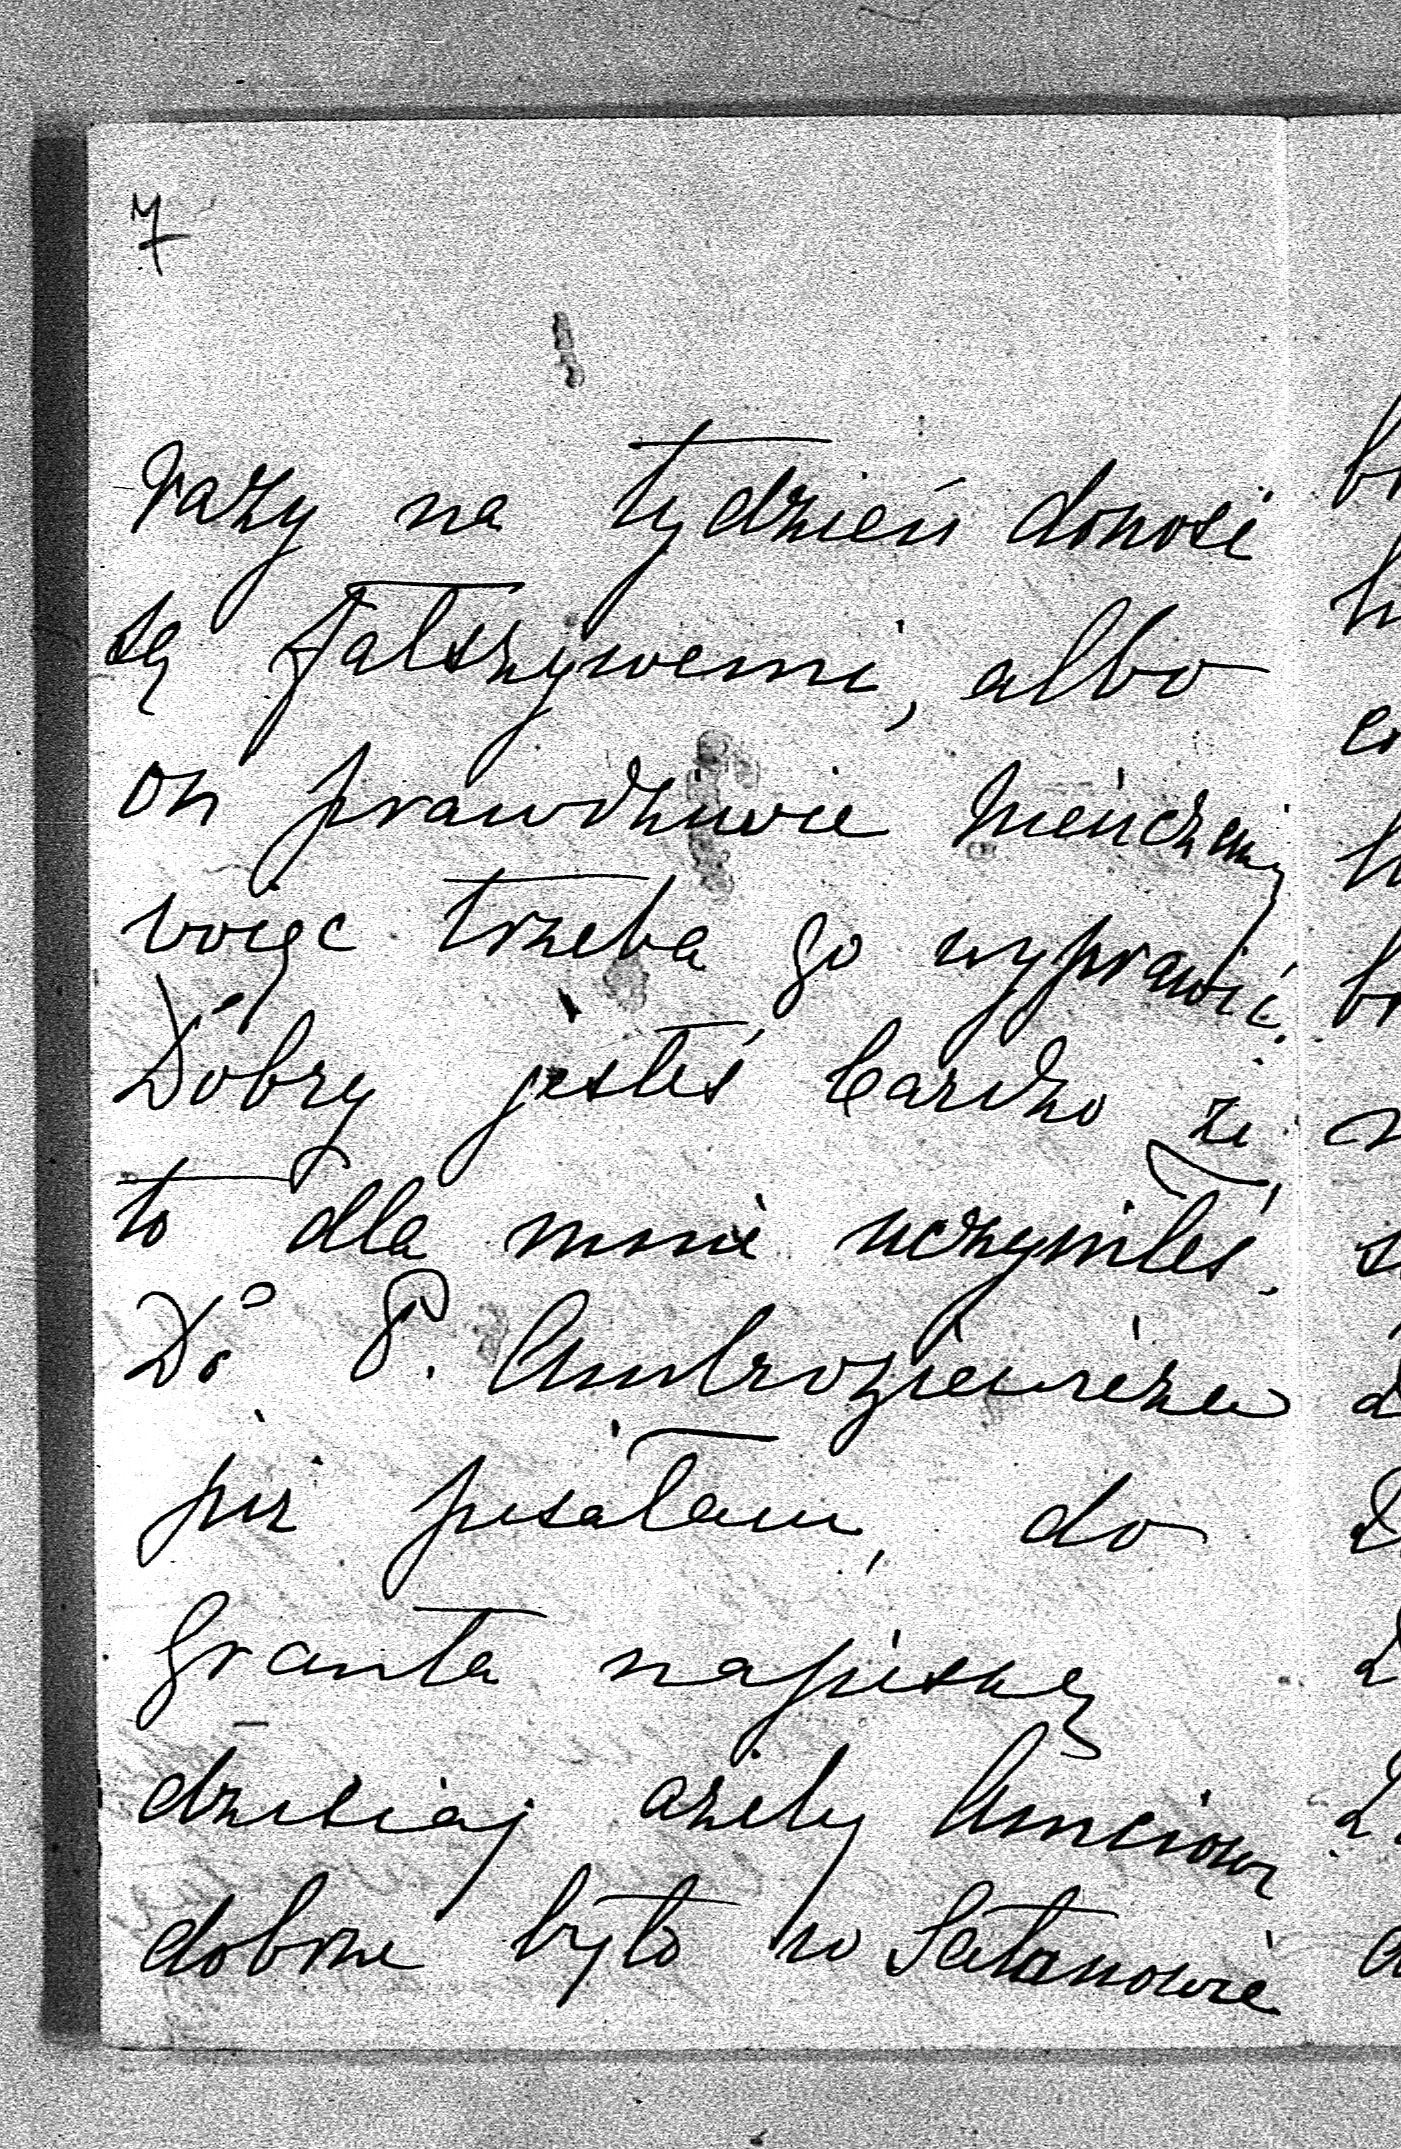 7
razy na tydzień donosi
są fałszywemi, albo
on prawdziwie
więc trzeba go wyprawić.
Dobry jesteś bardzo że
to dla mnie uczyniłeś.
Do P. Ambroziewicza
już pisałam, do
Granta napiszę
dzisiaj ażeby
dobrze było w Satanowie